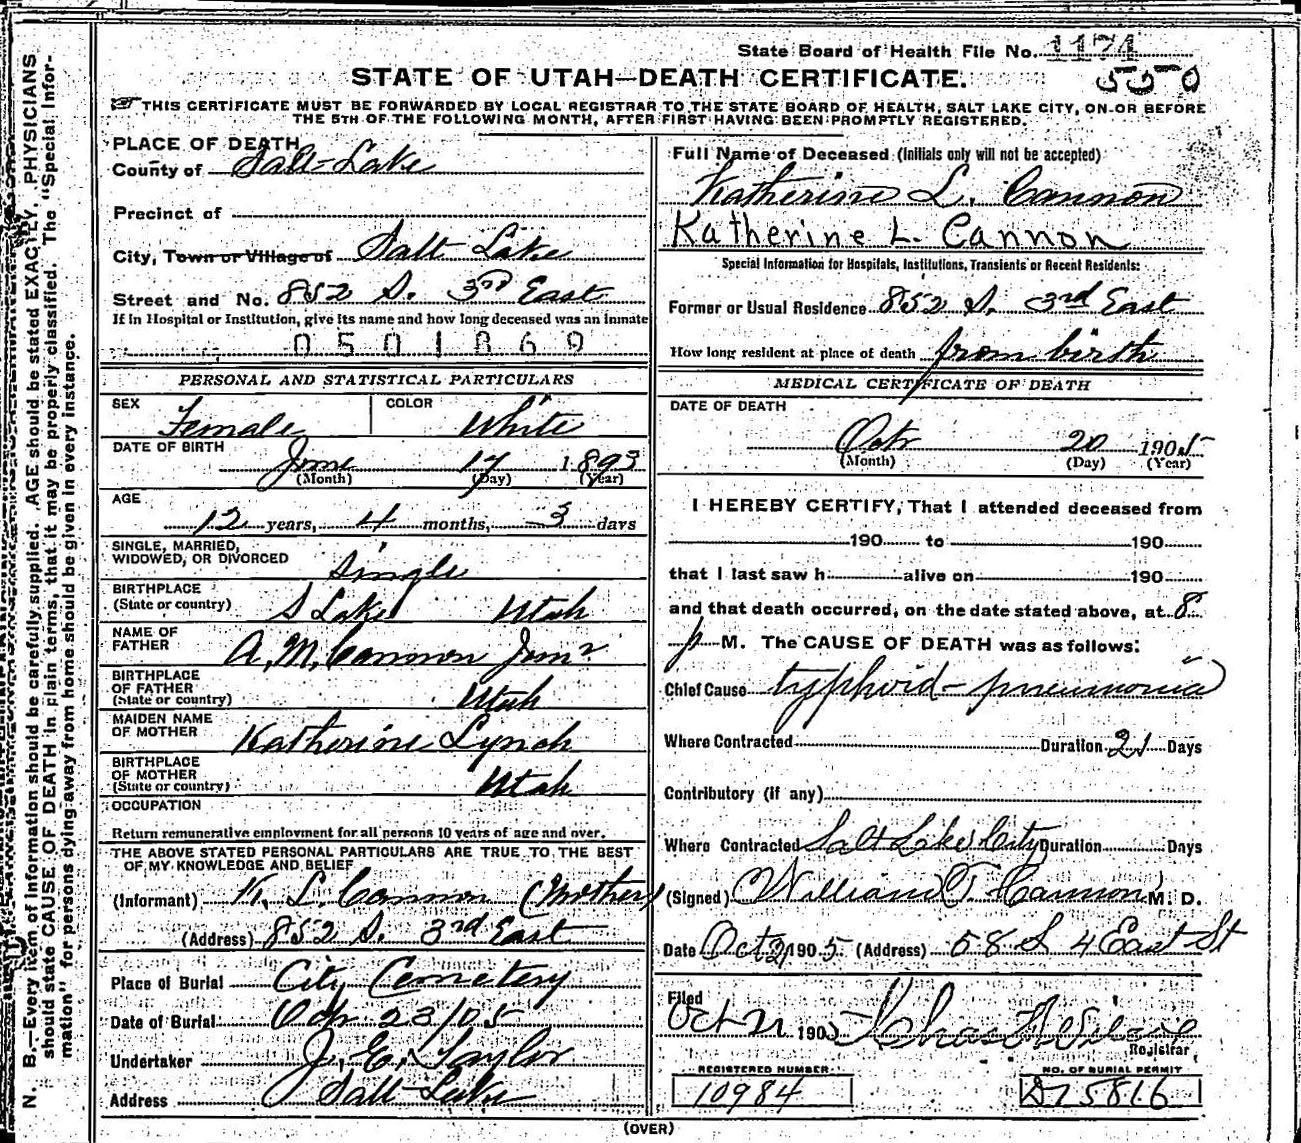 State Board of Health File No. 1171
550
STATE OF UTAH—DEATH CERTIFICATE.
THIS CERTIFICATE MUST BE FORWARDED BY LOCAL REGISTRAR TO THE STATE BOARD OF HEALTH, SALT LAKE CITY, ON OR BEFORE
THE 5TH OF THE FOLLOWING MONTH, AFTER FIRST HAVING BEEN PROMPTLY REGISTERED.
N. B.—Every item of information should be carefully supplied. AGE should be stated EXACTLY. PHYSICIANS
should state CAUSE OF DEATH in plain terms, that it may be properly classified. The "Special Infor-
mation" for persons dying away from home should be given in every instance.
PLACE OF DEATH
County of Salt Lake
Precinct of
City, Town or Village of Salt Lake
Street and No. 852 S. 3rd East
If in Hospital or Institution, give its name and how long deceased was an inmate
0501869
PERSONAL AND STATISTICAL PARTICULARS
SEX Female COLOR White
DATE OF BIRTH
June 17 1893
(Month) (Day) (Year)
AGE
12 years, 4 months, 3 days
SINGLE, MARRIED,
WIDOWED, OR DIVORCED Single
BIRTHPLACE
(State or country) S Lake Utah
NAME OF
FATHER A. M. Cannon Junr.
BIRTHPLACE
OF FATHER
(State or country) Utah
MAIDEN NAME
OF MOTHER Katherine Lynch
BIRTHPLACE
OF MOTHER
(State or country) Utah
OCCUPATION
Return remunerative employment for all persons 10 years of age and over.
THE ABOVE STATED PERSONAL PARTICULARS ARE TRUE TO THE BEST
OF MY KNOWLEDGE AND BELIEF
(Informant) K. L. Cannon (Mother)
(Address) 852 S. 3rd East
Place of Burial City Cemetery
Date of Burial Octr 23/05
Undertaker J. E. Taylor
Address Salt Lake
Full Name of Deceased (Initials only will not be accepted)
Katherine L. Cannon
Katherine L. Cannon
Special Information for Hospitals, Institutions, Transients or Recent Residents:
Former or Usual Residence 852 S. 3rd East
How long resident at place of death from birth
MEDICAL CERTIFICATE OF DEATH
DATE OF DEATH
Octr 20 1905
(Month) (Day) (Year)
I HEREBY CERTIFY, That I attended deceased from
190 to 190
that I last saw h alive on 190
and that death occurred, on the date stated above, at 8
p M. The CAUSE OF DEATH was as follows:
Chief Cause typhoid-pneumonia
Where Contracted Duration 21 Days
Contributory (if any)
Where Contracted Salt Lake City Duration Days
(Signed) William T. Cannon M. D.
Date Oct 21 1905 (Address) 58 S 4 East St
Filed
Oct 21 1905
Registrar
REGISTERED NUMBER
10984
NO. OF BURIAL PERMIT
D75816
(OVER)